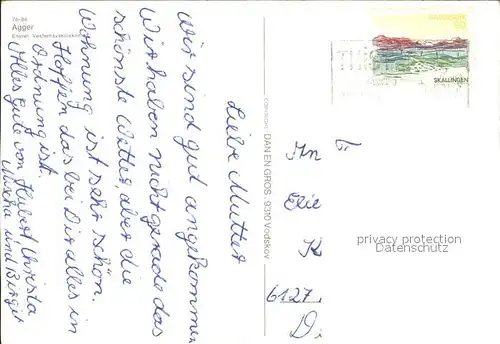 76-86
Agger
Liebe Mutter
Wir sind gut angekommen
Wir haben nicht gerade das
schönste Wetter, aber die
Wohnung ist sehr schön.
Hoffen das bei Dir alles in
Ordnung ist.
Alles gute von Hubert Christa
Mischa und Birgit
DAN EN GROS · 9310 Vodskov
SKALLINGEN
An Fr
K
6127
privacy protection
Datenschutz